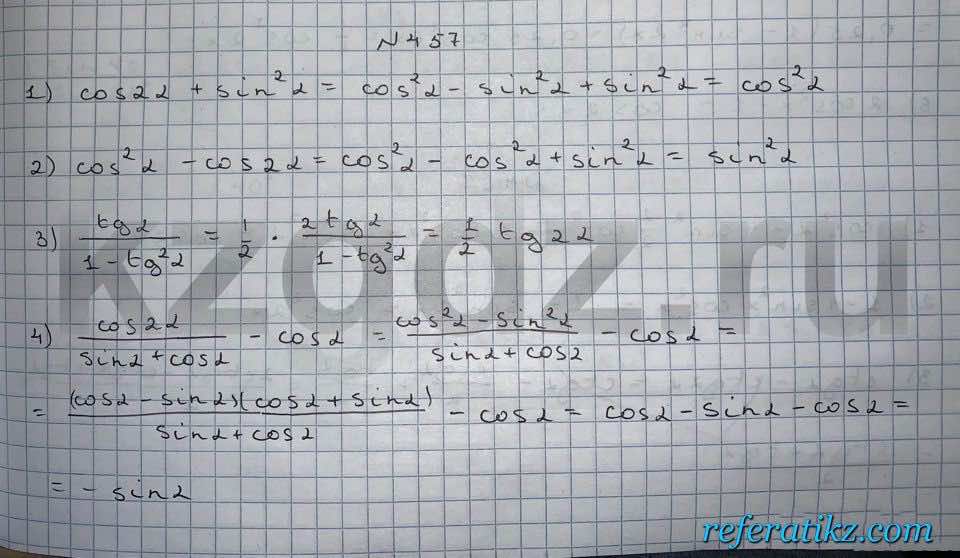 N 457
1) cos2α + sin²α = cos²α - sin²α + sin²α = cos²α
2) cos²α - cos2α = cos²α - cos²α + sin²α = sin²α
3) tgα / (1 - tg²α) = 1/2 · 2tgα / (1 - tg²α) = 1/2 tg2α
4) cos2α / (sinα + cosα) - cosα = (cos²α - sin²α) / (sinα + cosα) - cosα =
= (cosα - sinα)(cosα + sinα) / (sinα + cosα) - cosα = cosα - sinα - cosα =
= - sinα
kzgdz.ru
referatikz.com